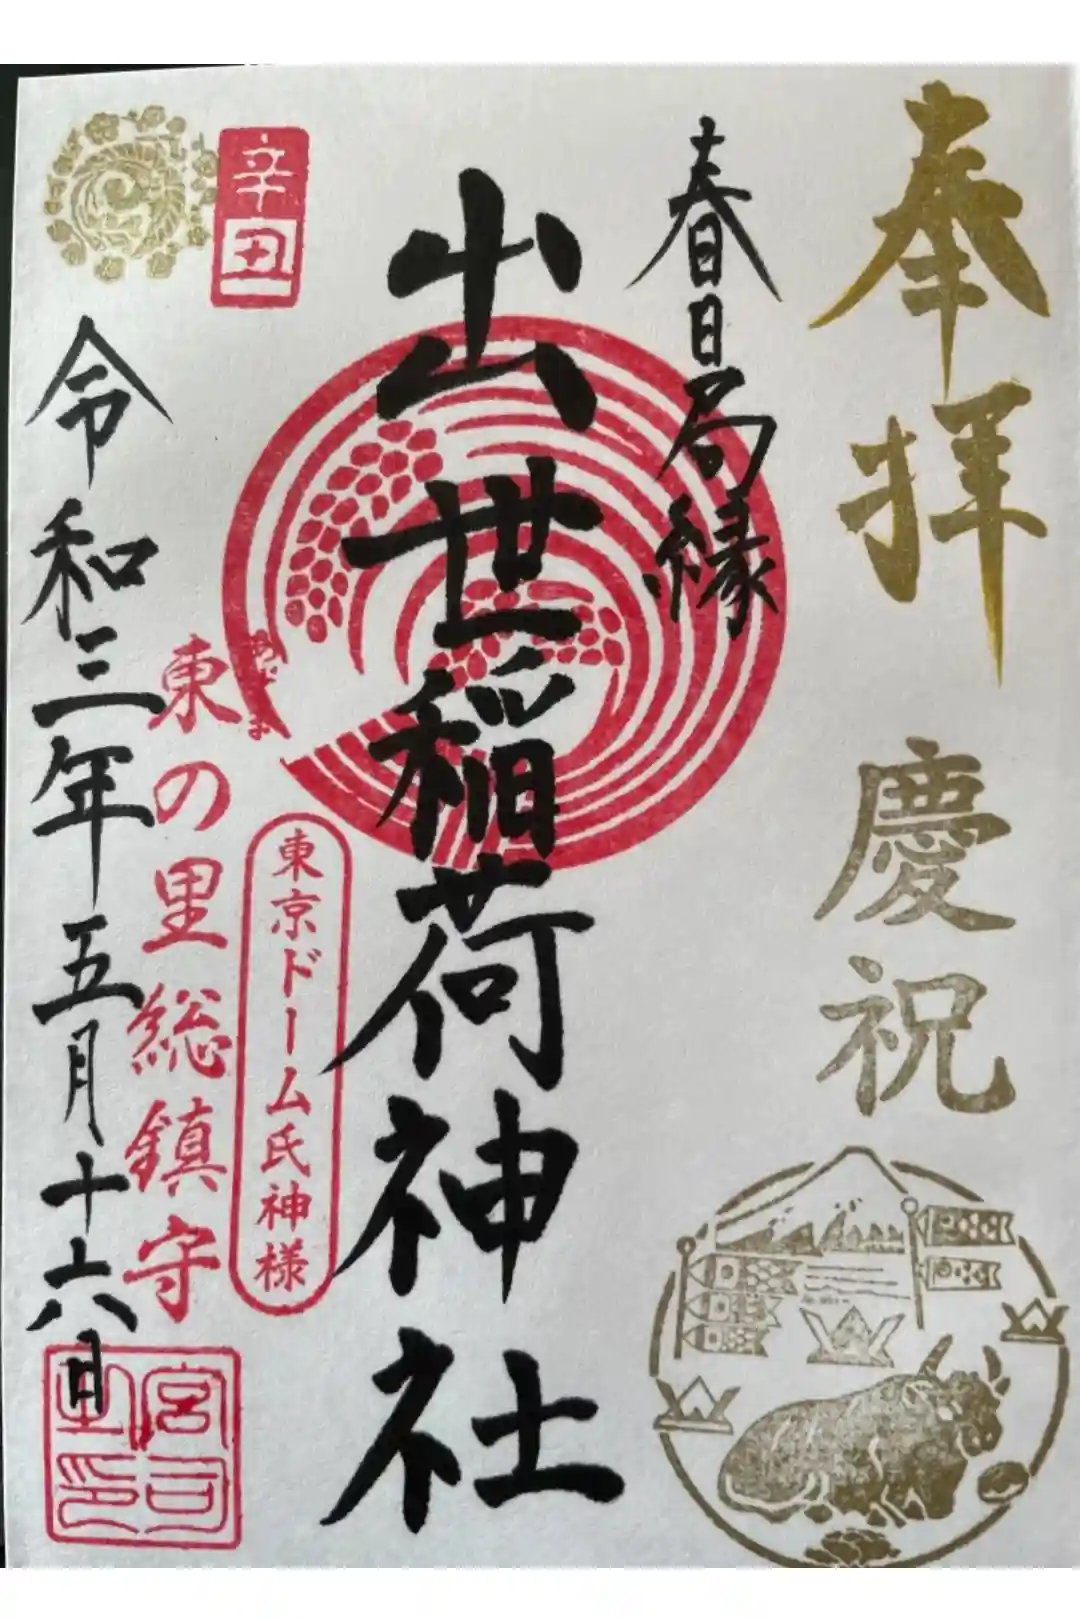 奉拝
慶祝
春日局縁
出世稲荷神社
東京ドーム氏神様
辛丑
東の里総鎮守
令和三年五月十六日